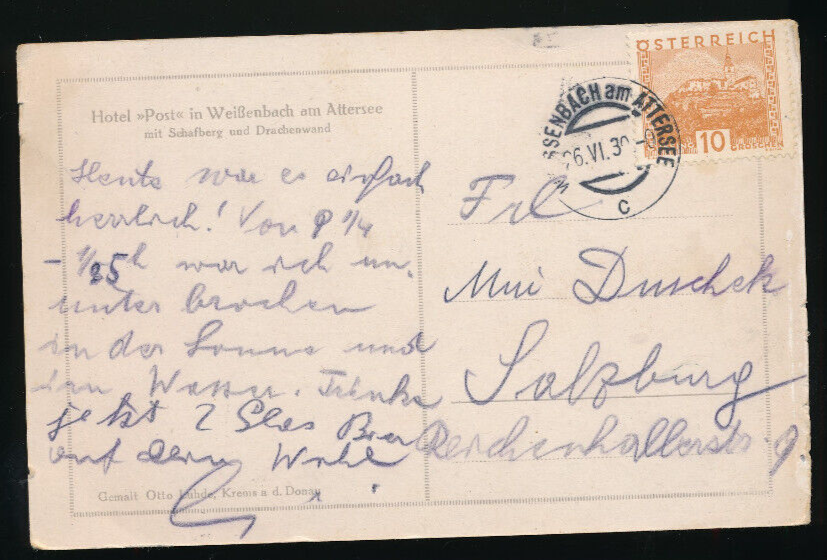 Hotel »Post« in Weißenbach am Attersee
mit Schafberg und Drachenwand
Heute war es einfach
herrlich! Von 9 1/4
- 1/2 5h war ich un-
unterbrochen
in der Sonne und
im Wasser. Trinke
jetzt 2 Glas Bier
auf dein Wohl
Gemalt Otto Lahds, Krems a d. Donau
ÖSTERREICH
10
GROSCHEN
SSENBACH am ATTERSEE
6.VI.30
c
Frl
Duschek
Salzburg
Reichenhallerstr. 9.